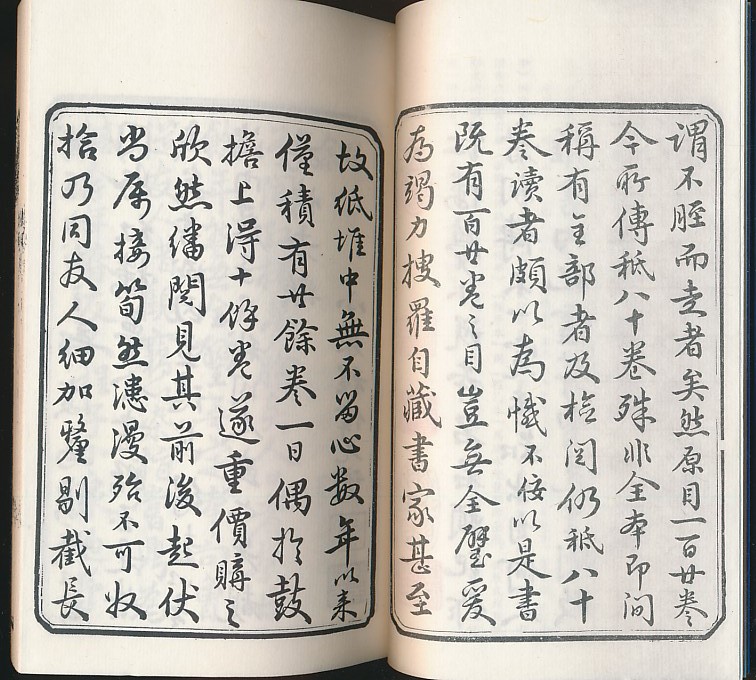 謂不脛而走者矣然原目一百廿卷
今所傳秪八十卷殊非全本即間
稱有全部者及檢閱仍秪八十
卷讀者頗以為憾不佞以是書
既有一百廿卷之目豈無全璧爰
為竭力搜羅自藏書家甚至
故紙堆中無不留心數年以來
僅積有廿餘卷一日偶於鼓
擔上得十餘卷遂重價購之
欣然繙閱見其前後起伏
尚屬接筍然漶漫殆不可收
拾乃同友人細加釐剔截長